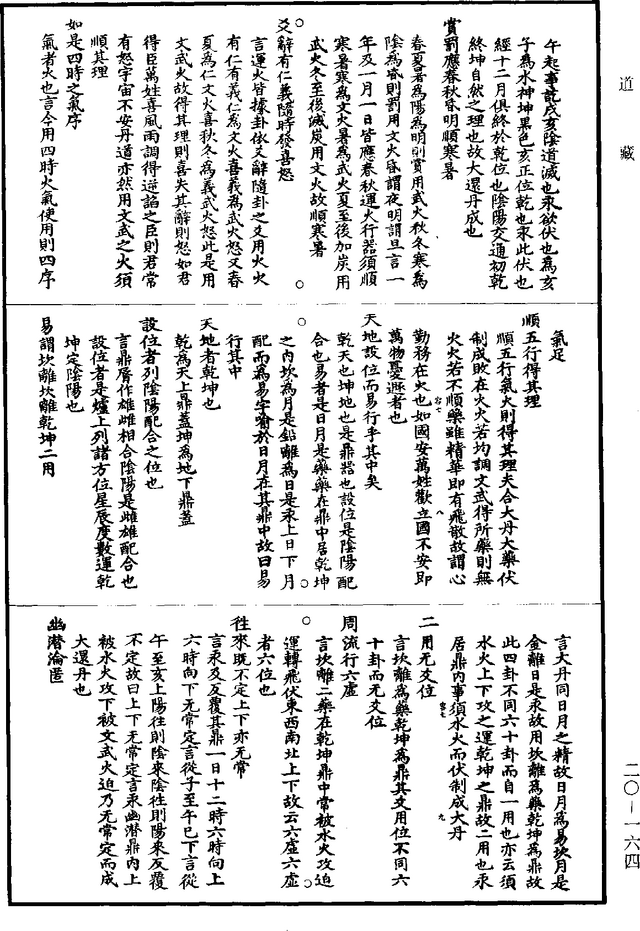 道藏
午起事訖戌亥陰道滅也汞欲伏也爲亥
子爲水神坤黑色亥正位乾也汞此伏也
經十二月俱終於乾位也陰陽交通初乾
終坤自然之理也故大還丹成也
賞罰應春秋昏明順寒暑
春夏暑爲陽爲明則賞用武火秋冬寒爲
陰爲昏則罰用文火昏謂夜明謂旦言一
年及一月一日皆應春秋運火行器須順
寒暑寒爲文火暑爲武火夏至後加炭用
武火冬至後減炭用文火故順寒暑
爻辭有仁義隨時發喜怒
言運火皆據卦依爻辭隨卦之爻用火火
有仁有義仁爲文火喜義爲武火怒又春
夏爲仁文火喜秋冬爲義武火怒此是用
文武火故得其理則喜失其辭則怒如君
得臣萬姓喜風雨調得逆諂之臣則君常
有怒宇宙不安丹道亦然用文武之火須
順其理
如是四時之氣序
氣者火也言令用四時火氣使用則四序
氣足
順五行得其理
順五行氣火則得其理夫合大丹大藥伏
制成敗在火火若均調文武得所藥則無
火火若不順藥雖精華即有飛散故謂心
勤務在火也如國安萬姓歡立國不安即
萬物憂逃者也
天地設位而易行乎其中矣
乾天也坤地也是鼎器也設位是陰陽配
合也易者是日月是藥藥在鼎中居乾坤
之內坎爲月是鉛離爲日是汞上日下月
配而爲易字喻於日月在其鼎中故曰易
行其中
天地者乾坤也
乾爲天上鼎蓋坤爲地下鼎蓋
設位者列陰陽配合之位也
言鼎脣作雄雌相合陰陽是雌雄配合也
設位者是爐上列諸方位星辰度數運乾
坤定陰陽也
易謂坎離坎離乾坤二用
言大丹同日月之精故日月爲易坎月是
金離日是汞故用坎離爲藥乾坤爲鼎故
此四卦不同六十卦而自一用也亦云須
水火上下攻之運乾坤之鼎故二用也汞
居鼎內事須水火而伏制成大丹
二用无爻位
言坎離爲藥乾坤爲鼎其爻用位不同六
十卦而无爻位
周流行六虛
言坎離二藥在乾坤鼎中常被水火攻迫
運轉飛伏東西南北上下故云六虛六虛
者六位也
往來既不定上下亦无常
言汞及反覆其鼎一日十二時六時向上
六時向下无常定言從子至午巳下言從
午至亥上陽往則陰來陰往則陽來反覆
不定故曰上下无常定言汞幽潛鼎內上
被水火攻下被文武火迫乃无常定而成
大還丹也
幽潛淪匿
二〇－一六四